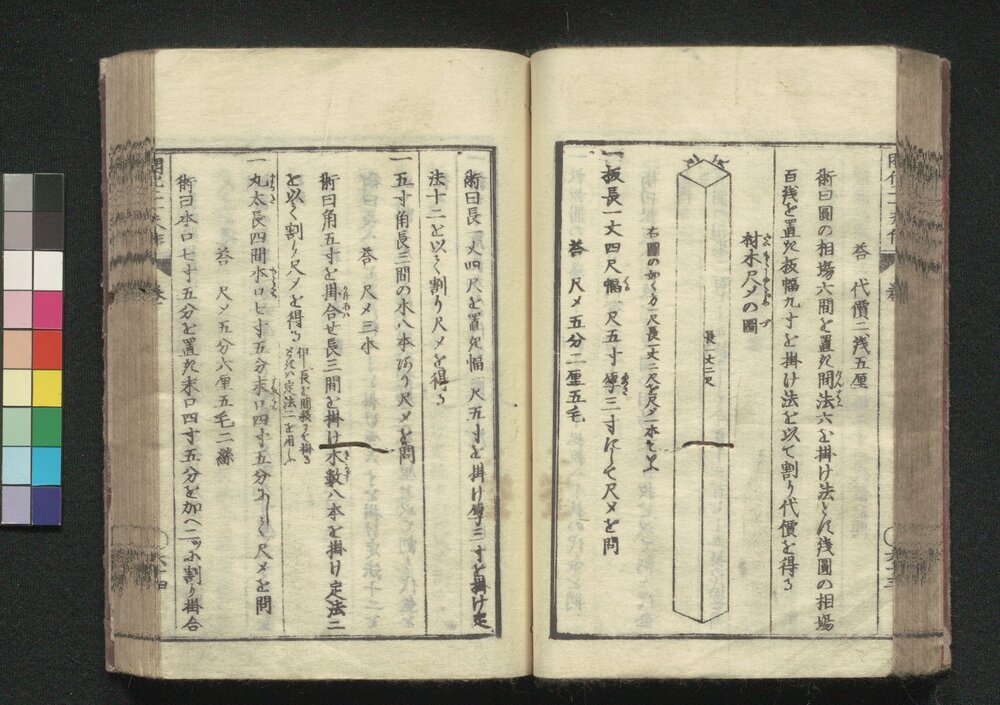 答 代價二浅五厘
術曰圓の相場六間を置き間法六を掛け法とし浅圓の相場
百浅を置き板幅九寸を掛け法を以て割り代價を得る
材木尺〆の圖
長一丈二尺
右圖の如く方一尺長一丈二尺を尺〆一本とす
一 板長一丈四尺幅一尺五寸厚三寸にして尺〆を問
答 尺〆五分二厘五毛
術曰長一丈四尺を置き幅一尺五寸を掛け厚三寸を掛け定
法十二を以て割り尺〆を得る
一 五寸角長三間の木八本あり尺〆を問
答 尺〆三本
術曰角五寸を掛合せ長三間を掛け木数八本を掛け定法二
を以て割り尺〆を得る 但し長を間数にて掛る
ときハ定法二を用ふ
一 丸太長四間木口七寸五分末口四寸五分あり尺〆を問
答 尺〆五分六厘五毛二絲
術曰木口七寸五分を置き末口四寸五分を加へ二ツに割り掛合
六十三
六十四